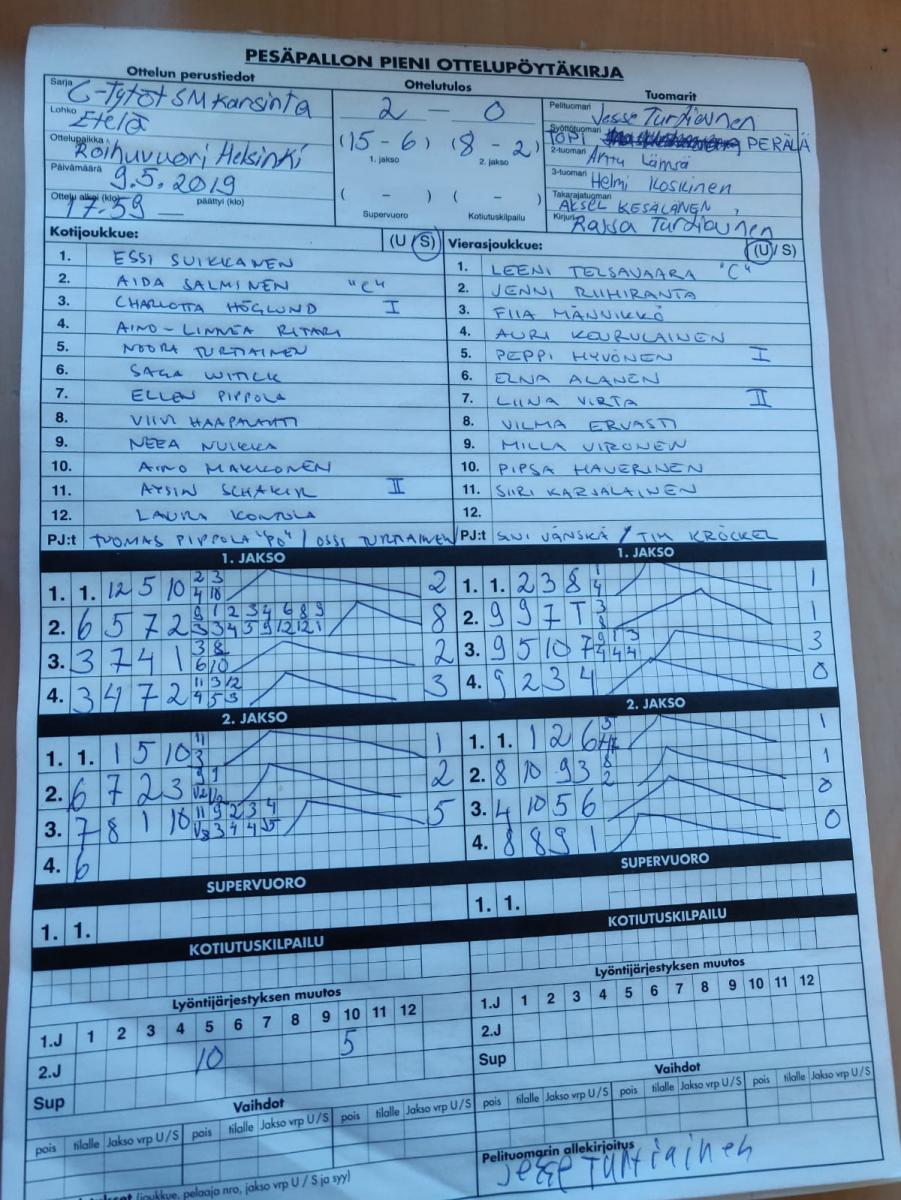 PESÄPALLON PIENI OTTELUPÖYTÄKIRJA
Ottelun perustiedot
Sarja C-Tytöt SM Karsinta
Lohko Etelä
Ottelupaikka Roihuvuori Helsinki
Päivämäärä 9.5.2019
Ottelu alkoi (klo) 17.59 päättyi (klo)
Ottelutulos
2 – 0
(15 - 6) (8 - 2)
1. jakso 2. jakso
( - ) ( - )
Supervuoro Kotiutuskilpailu
Tuomarit
Pelituomari Jesse Turtiainen
Syöttötuomari TOPI PERÄLÄ
2-tuomari Anttu Lämsä
3-tuomari Helmi Koskinen
Takarajatuomari AKSEL KESÄLÄNEN
Kirjuri Raksa Turtiainen
Kotijoukkue: (U/S)
1. ESSI SUIKKANEN
2. AIDA SALMINEN "C"
3. CHARLOTTA HÖGLUND I
4. AINO-LINNEA RITARI
5. NOORA TURTIAINEN
6. SAGA WITICK
7. ELLEN PIPPOLA
8. VIIVI HAAPALAHTI
9. NEEA NUIKKA
10. AINO MAKKONEN
11. AYSIN SCHAKIR II
12. LAURA KONTULA
PJ:t TUOMAS PIPPOLA "PO" / OSSI TURTIAINEN
Vierasjoukkue: (U/S)
1. LEENI TELSAVAARA "C"
2. JENNI RIIHIRANTA
3. FIIA MÄNNIKKÖ
4. AURI KOURULAINEN
5. PEPPI HYVÖNEN I
6. ELNA ALANEN
7. LIINA VIRTA II
8. VILMA ERVASTI
9. MILLA VIRONEN
10. PIPSA HAVERINEN
11. SIIRI KARJALAINEN
12.
PJ:t SINI JÄNSKÄ / TIM KRÖCKEL
1. JAKSO
1. 1. 12 5 10 2 3 2
4 10
2. 6 5 7 2 9 1 2 3 4 6 8 9 8
3 3 4 5 9 12 12 1
3. 3 7 4 1 3 8 2
6 10
4. 3 4 7 2 11 3 12 3
4 5 3
1. JAKSO
1. 1. 2 3 8 1 1
4
2. 9 9 7 T 3 1
8
3. 9 5 10 7 9 1 3 3
4 4 4
4. 9 2 3 4 0
2. JAKSO
1. 1. 1 5 10 11 1
2. 6 7 2 3 9 1 2
3. 7 8 1 10 11 9 2 3 4 5
4. 6
2. JAKSO
1. 1. 1 2 6 3 1
2. 8 10 9 3 8 1
2
3. 4 10 5 6 0
4. 8 8 9 1 0
SUPERVUORO
1. 1.
SUPERVUORO
1. 1.
KOTIUTUSKILPAILU
KOTIUTUSKILPAILU
Lyöntijärjestyksen muutos
1.J 1 2 3 4 5 6 7 8 9 10 11 12
2.J 10 5
Sup
Lyöntijärjestyksen muutos
1.J 1 2 3 4 5 6 7 8 9 10 11 12
2.J
Sup
Vaihdot
pois tilalle Jakso vrp U/S pois tilalle Jakso vrp U/S pois tilalle Jakso vrp U/S
Vaihdot
pois tilalle Jakso vrp U/S pois tilalle Jakso vrp U/S pois tilalle Jakso vrp U/S
(joukkue, pelaaja nro, jakso vrp U / S ja syy)
Pelituomarin allekirjoitus
Jesse Turtiainen